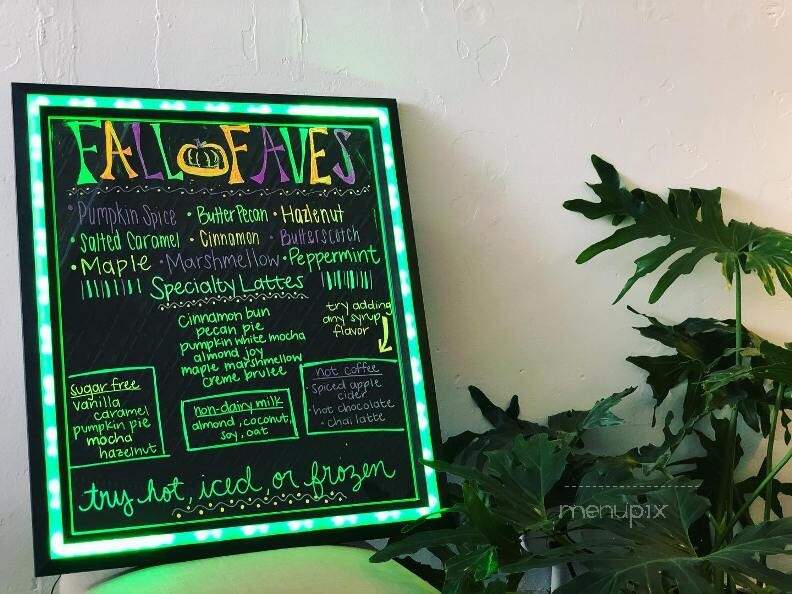 FALL FAVES
• Pumpkin Spice • Butter Pecan • Hazlenut
• Salted Caramel • Cinnamon • Butterscotch
• Maple • Marshmellow • Peppermint
Specialty Lattes
Cinnamon bun
pecan pie
pumpkin white mocha
almond joy
maple marshmellow
creme brulee
try adding
any syrup
flavor
sugar free
vanilla
caramel
pumpkin pie
mocha
hazelnut
non-dairy milk
almond, coconut,
soy, oat
not coffee
• spiced apple
cider
• hot chocolate
• chai latte
try hot, iced or frozen
menupix